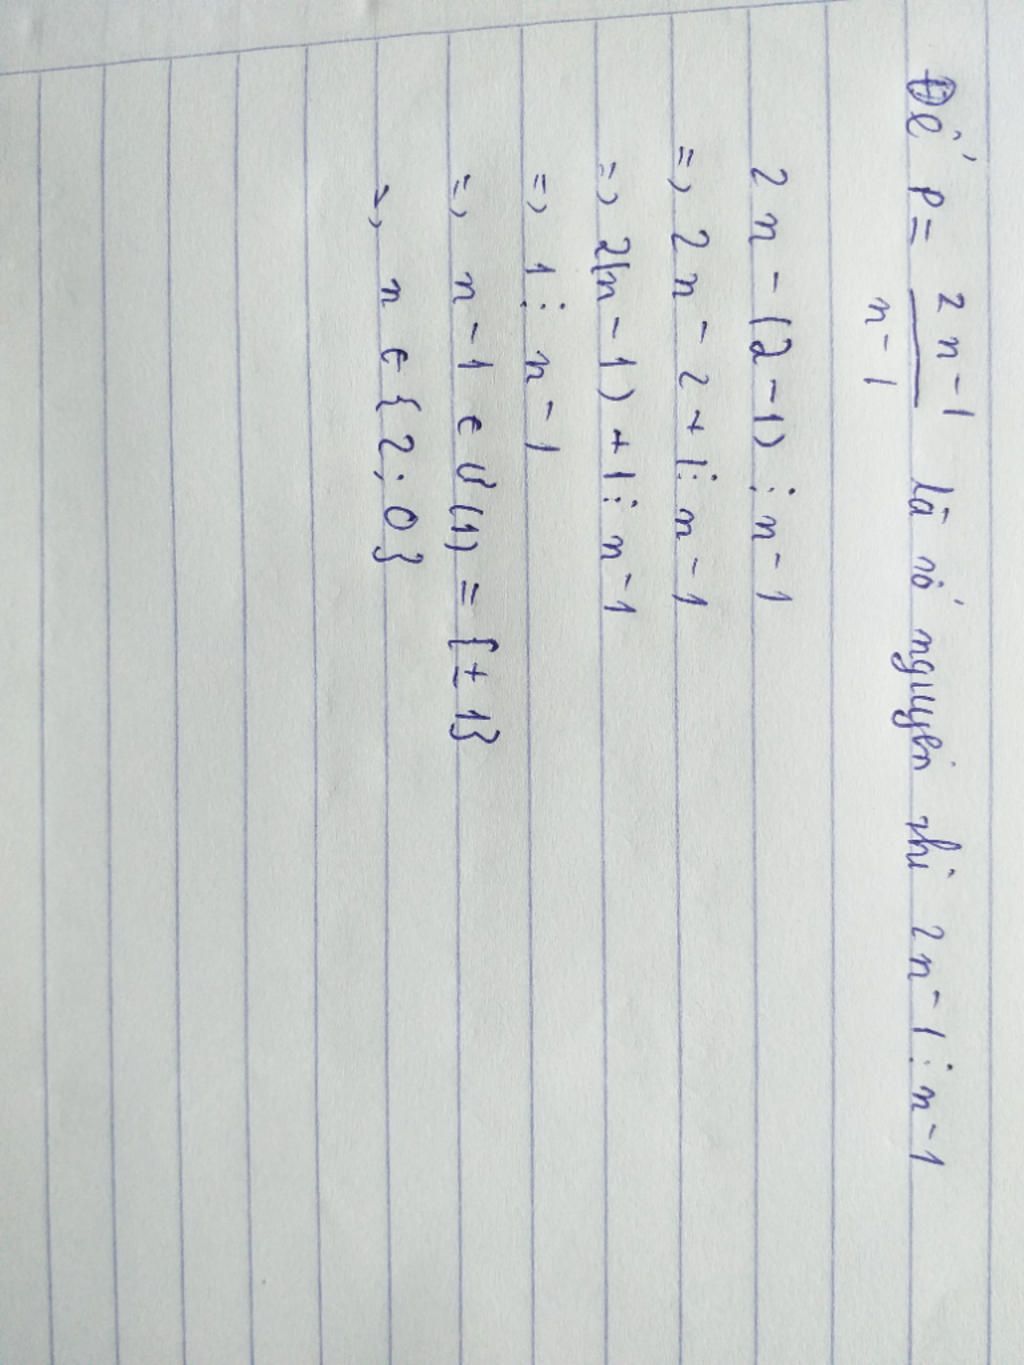 Để P = 2n-1 / n-1 là số nguyên thì 2n-1 ⋮ n-1
2n - (2-1) ⋮ n-1
=> 2n - 2 + 1 ⋮ n-1
=> 2(n-1) + 1 ⋮ n-1
=> 1 ⋮ n-1
=> n-1 ∈ Ư(1) = {± 1}
=> n ∈ {2; 0}